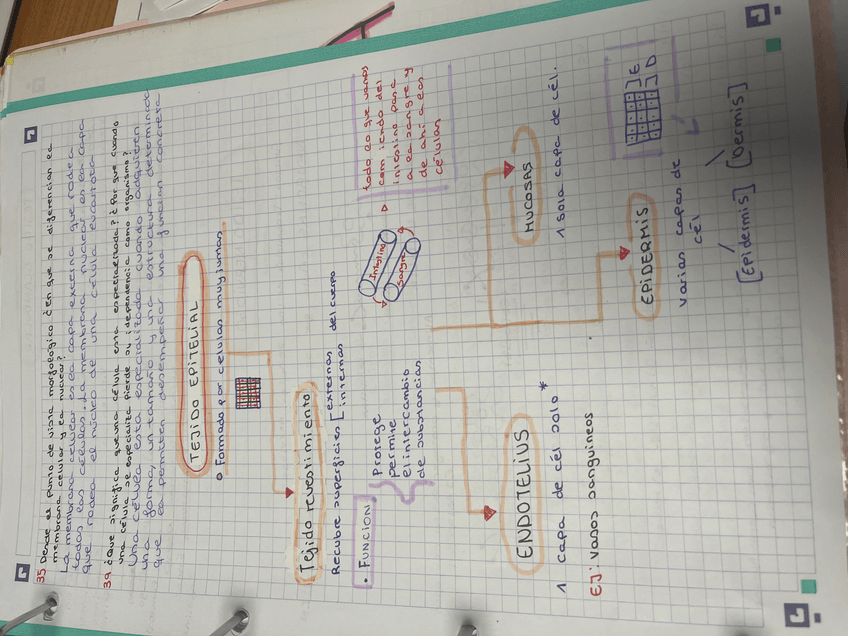 35 Desde el punto de vista morfologico ¿en que se diferencian la
membrana celular y la nuclear?
La membrana celular es la capa externa que rodea
todas las células. La membrana nuclear es la capa
que rodea el núcleo de una célula eucariota
39 ¿Que significa que una célula esta especializada? ¿Por que cuando
una célula se especializa pierde su independencia como organismo?
Una célula esta especializada cuando adquieren
una forma, un tamaño y una estructura determinada
que la permiten desempeñar una función concreta
TEJIDO EPITELIAL
Formado por celulas muy juntas
Tejido revestimiento
Recubre superficies [externas
internas del cuerpo
• FUNCION:
Protege
permite
el intercambio
de substancias
Intestino
Sangre
todo lo que vamos
comiendo del
intestino pasa
a la sangre y
de ahi a las
células
ENDOTELIUS
1 capa de cél solo *
EJ: Vasos sanguineos
MUCOSAS
1 sola capa de cél.
EPIDERMIS
varias capas de
cél
]E
]D
[Epidermis] [Dermis]